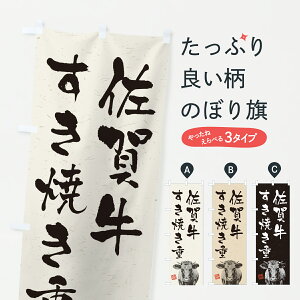 たっぷり
良い柄
のぼり旗
やったね
えらべる3タイプ
A
B
C
佐賀牛
すき焼き重
佐賀牛
すき焼き重
佐賀牛
すき焼き重
佐賀牛
すき焼き重